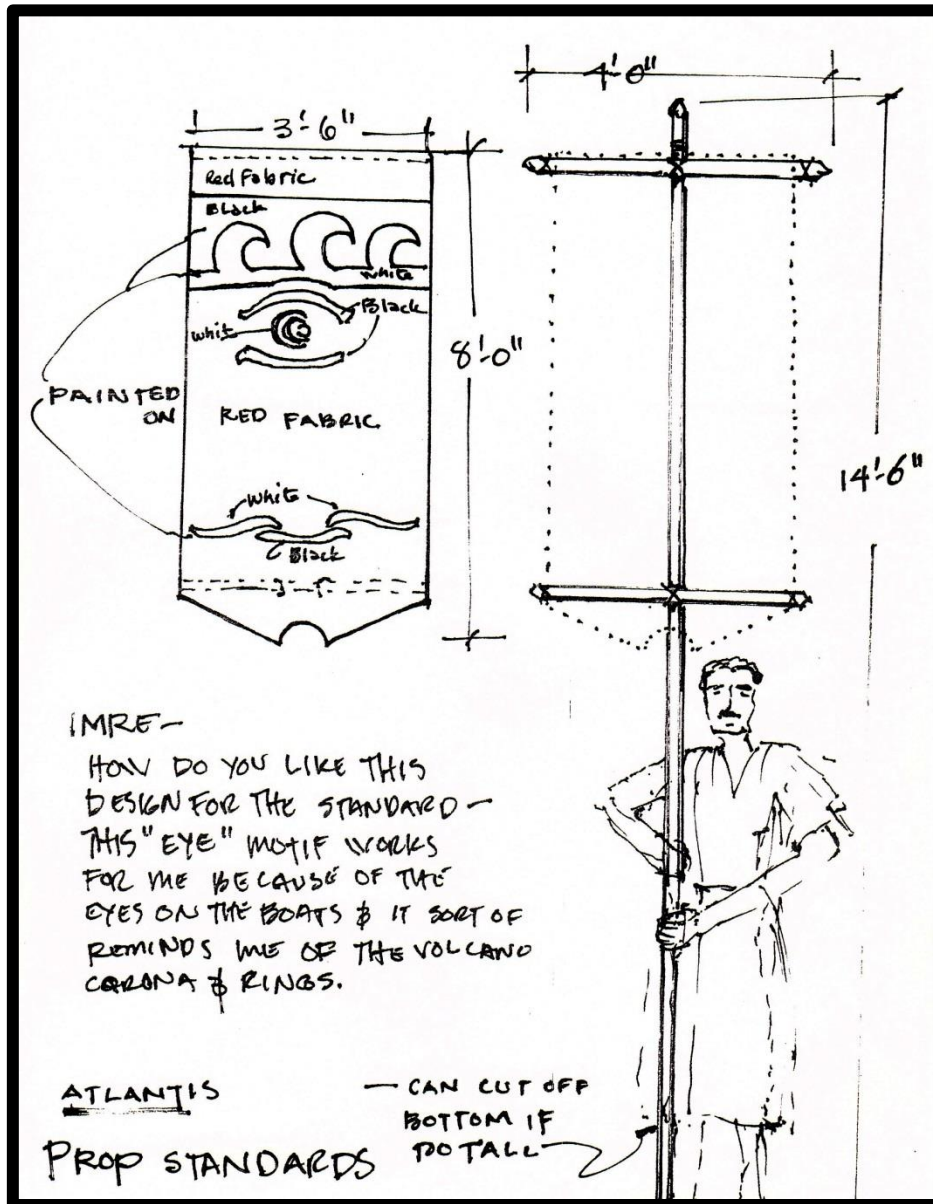 3'-6"
4'-0"
Red Fabric
Black
White
Black
whit
8'-0"
14'-6"
PAINTED
ON
RED FABRIC
White
Black
IMRE—
HOW DO YOU LIKE THIS
DESIGN FOR THE STANDARD—
THIS "EYE" MOTIF WORKS
FOR ME BECAUSE OF THE
EYES ON THE BOATS & IT SORT OF
REMINDS ME OF THE VOLCANO
CORONA & RINGS.
ATLANTIS
PROP STANDARDS
— CAN CUT OFF
BOTTOM IF
TOO TALL